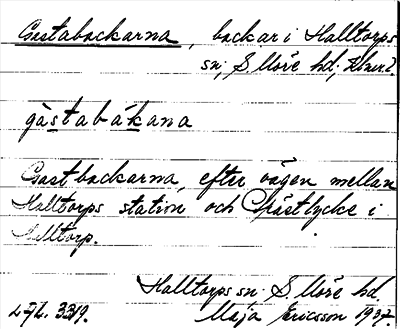 Gastabackarna, backar i Halltorps
sn. S. Möre hd.
gàstabákana
Gastbackarna, efter vägen mellan
Halltorps station och Gästlycke i
Halltorp.
Halltorps sn. S. Möre hd.
Maja Ericsson 1937.